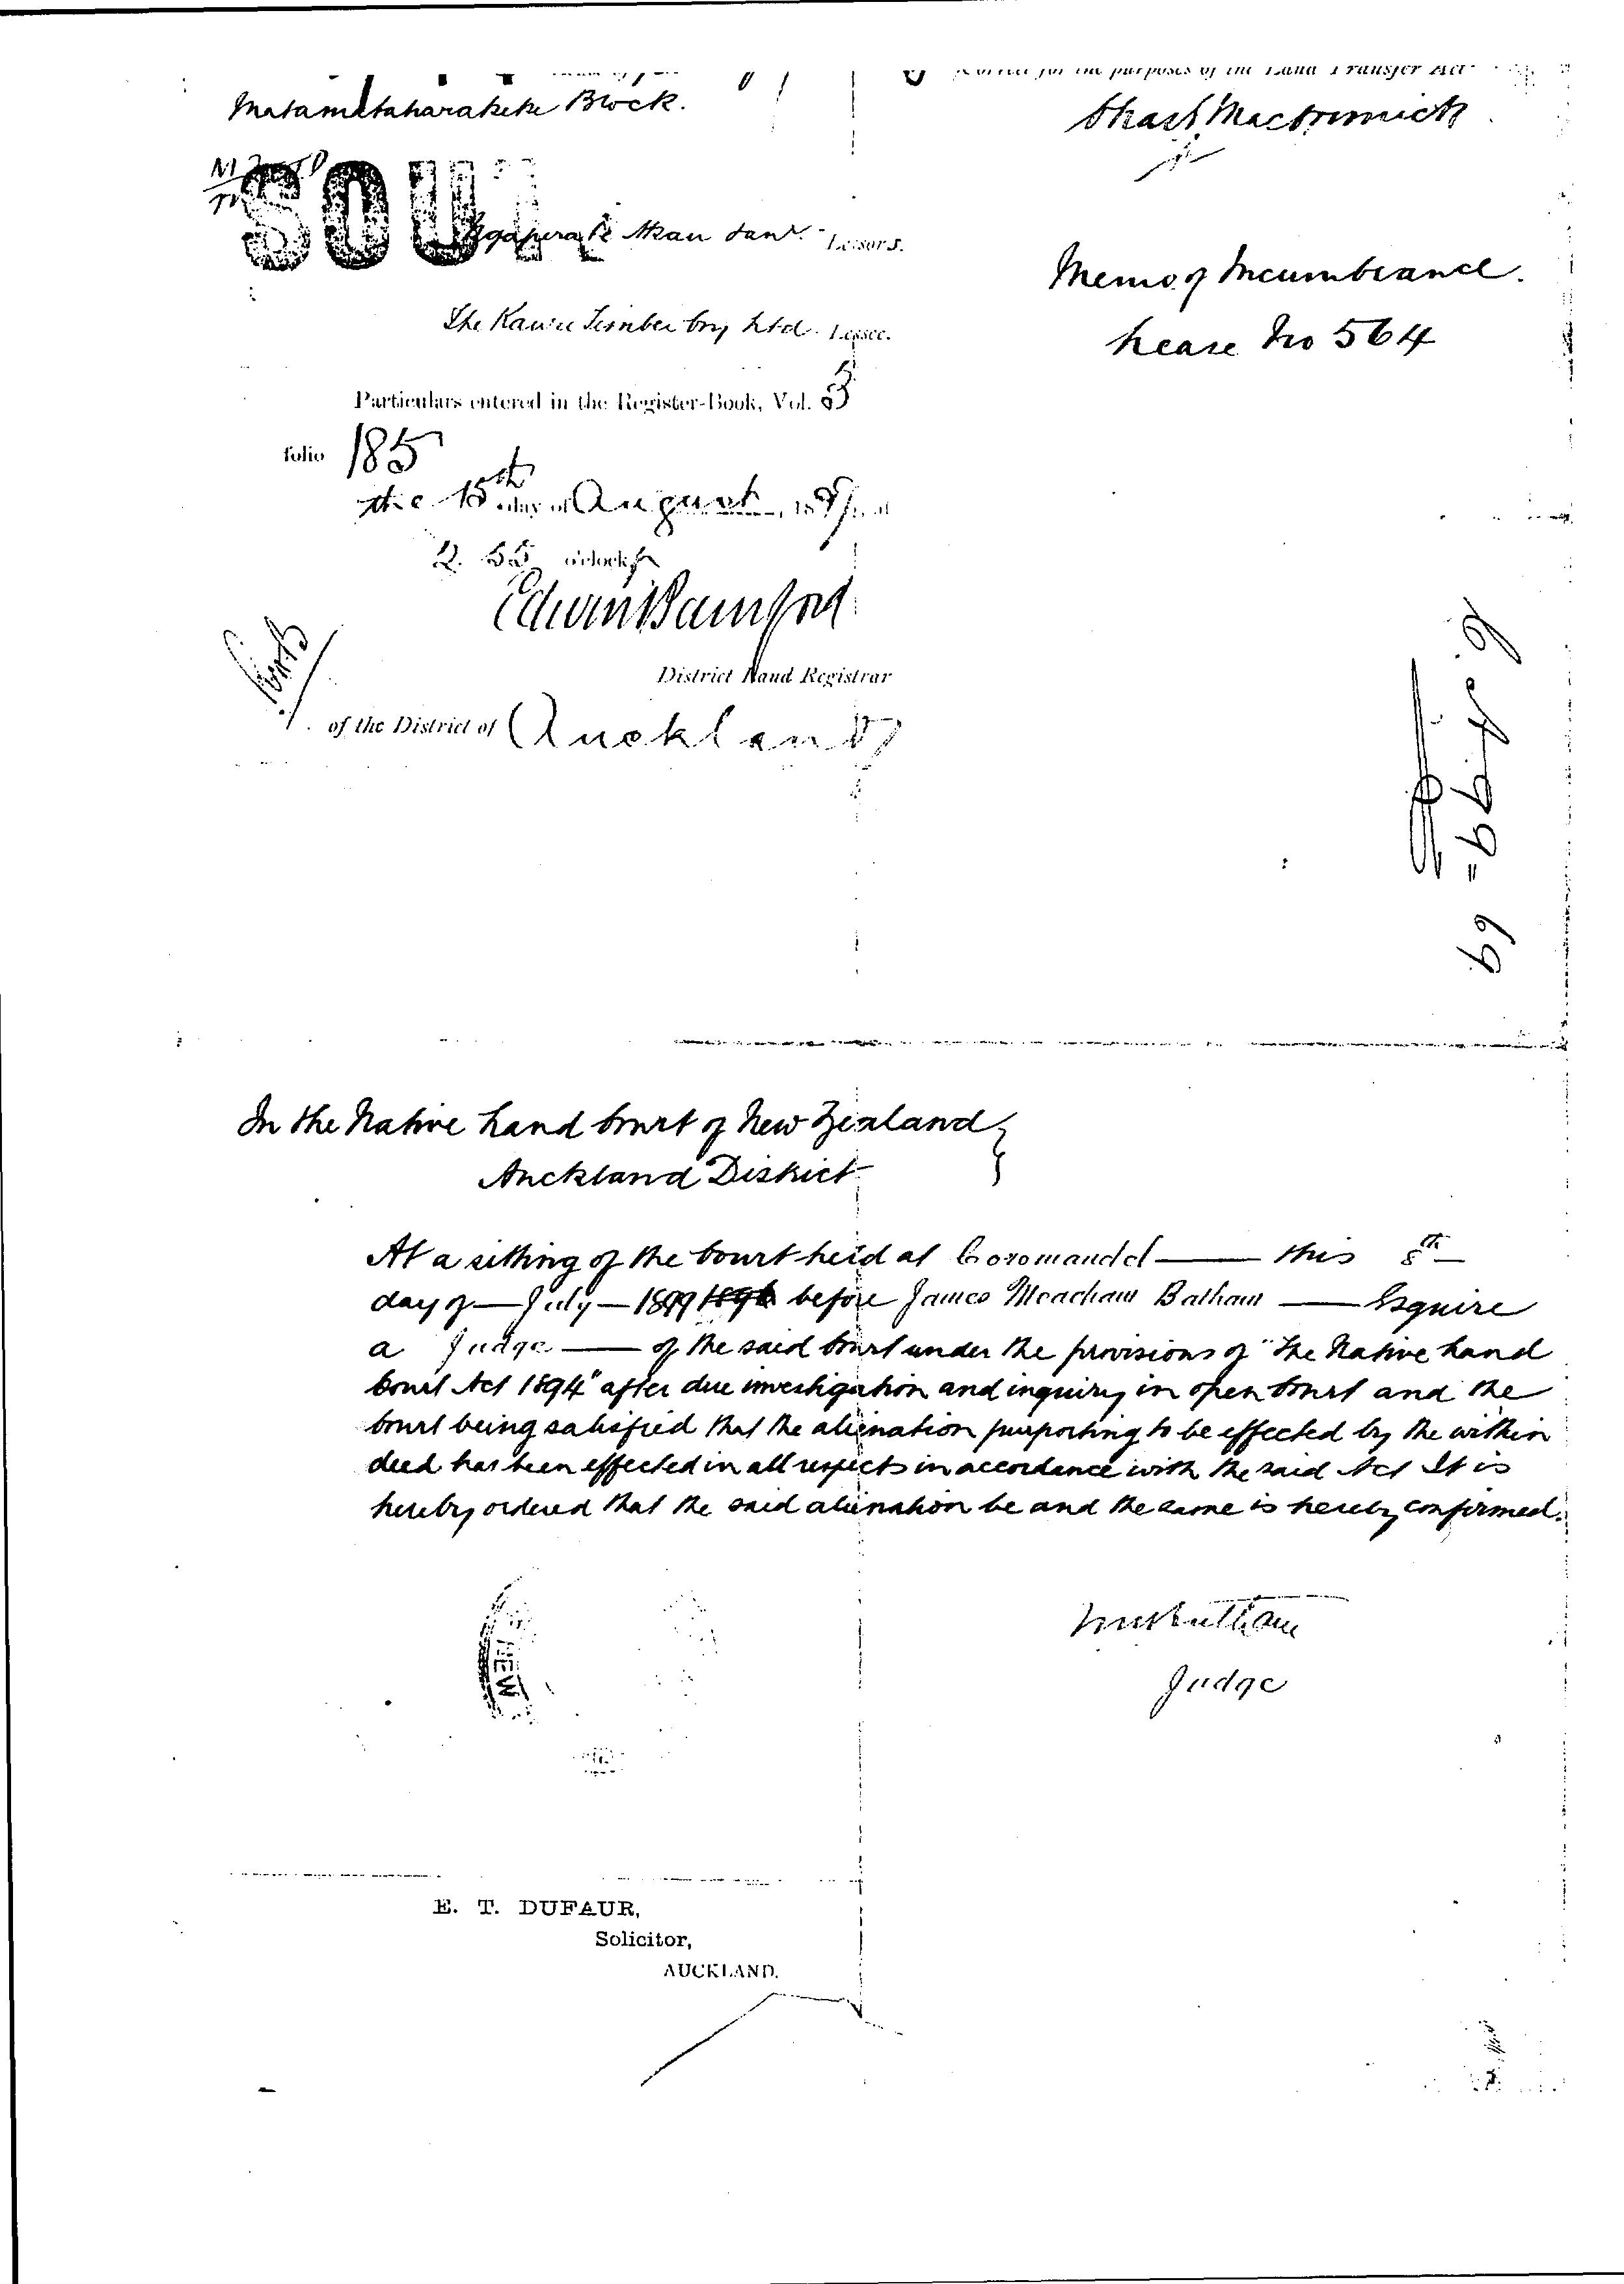 Matamataharakeke Block.
Correct for the purposes of the Land Transfer Act
SOU
Lessors.
The Kauri Timber Coy Ltd. Lessee.
Memo of Incumbrance.
Lease No 564
Particulars entered in the Register-Book, Vol.
folio 185
the 15th day of August, 18
2. 55 o'clock
Edwin Bamford
District Land Registrar
of the District of Auckland
In the Native Land Court of New Zealand
Auckland District
At a sitting of the Court held at Coromandel — this 8th
day of — July — 1899 1896 before James Meacham Batham — Esquire
a Judge — of the said Court under the provisions of "The Native Land
Court Act 1894" after due investigation and inquiry in open Court and the
Court being satisfied that the alienation purporting to be effected by the within
deed has been effected in all respects in accordance with the said Act It is
hereby ordered that the said alienation be and the same is hereby confirmed.
Judge
E. T. DUFAUR,
Solicitor,
AUCKLAND.